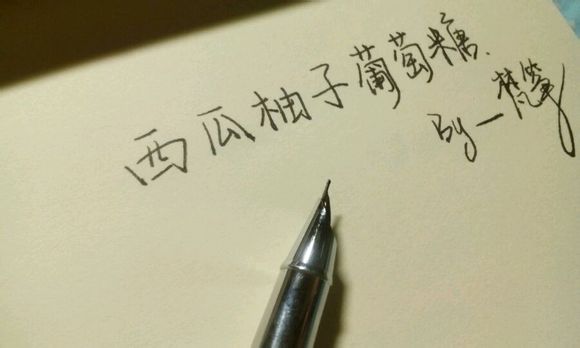 西瓜柚子葡萄糖.
By一梵